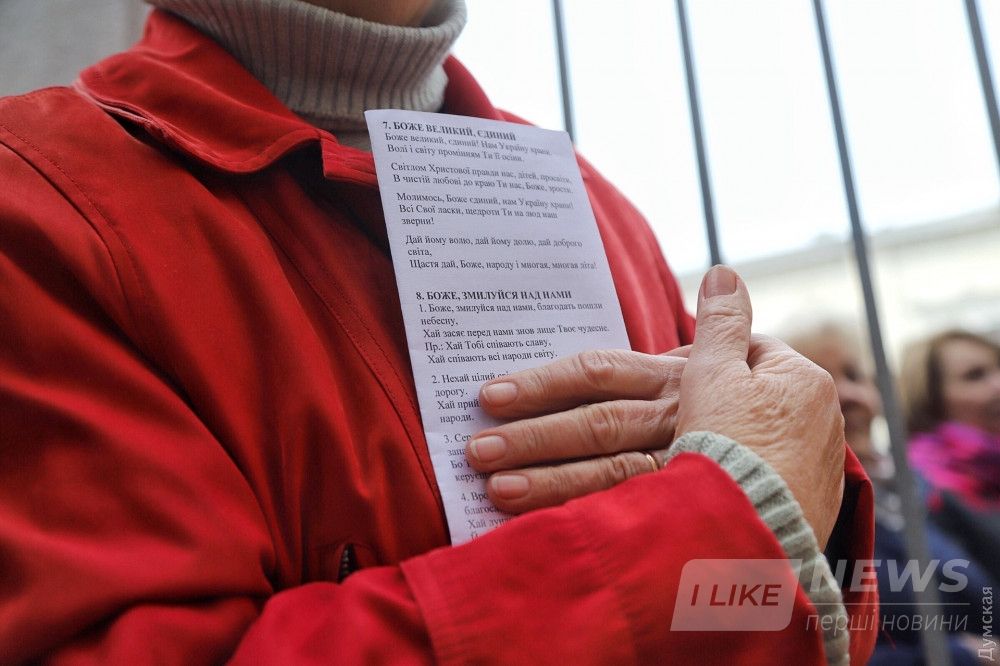 7. БОЖЕ ВЕЛИКИЙ, ЄДИНИЙ
Боже великий, єдиний! Нам Україну храни,
Волі і світу промінням Ти її осіни.
Світлом Христової правди нас, дітей, просвіти,
В чистій любові до краю Ти нас, Боже, зрости.
Молимось, Боже єдиний, нам Україну храни!
Всі Свої ласки, щедроти Ти на люд наш
зверни!
Дай йому волю, дай йому долю, дай доброго
світа,
Щастя дай, Боже, народу і многая, многая літа!
8. БОЖЕ, ЗМИЛУЙСЯ НАД НАМИ
1. Боже, змилуйся над нами, благодать пошли
небесну,
Хай засяє перед нами знов лице Твоє чудесне.
Пр.: Хай Тобі співають славу,
Хай співають всі народи світу.
2. Нехай цілий
дорогу.
Хай
народи.
3.
Бо
4.
Хай
I LIKE NEWS
перші новини
Думская